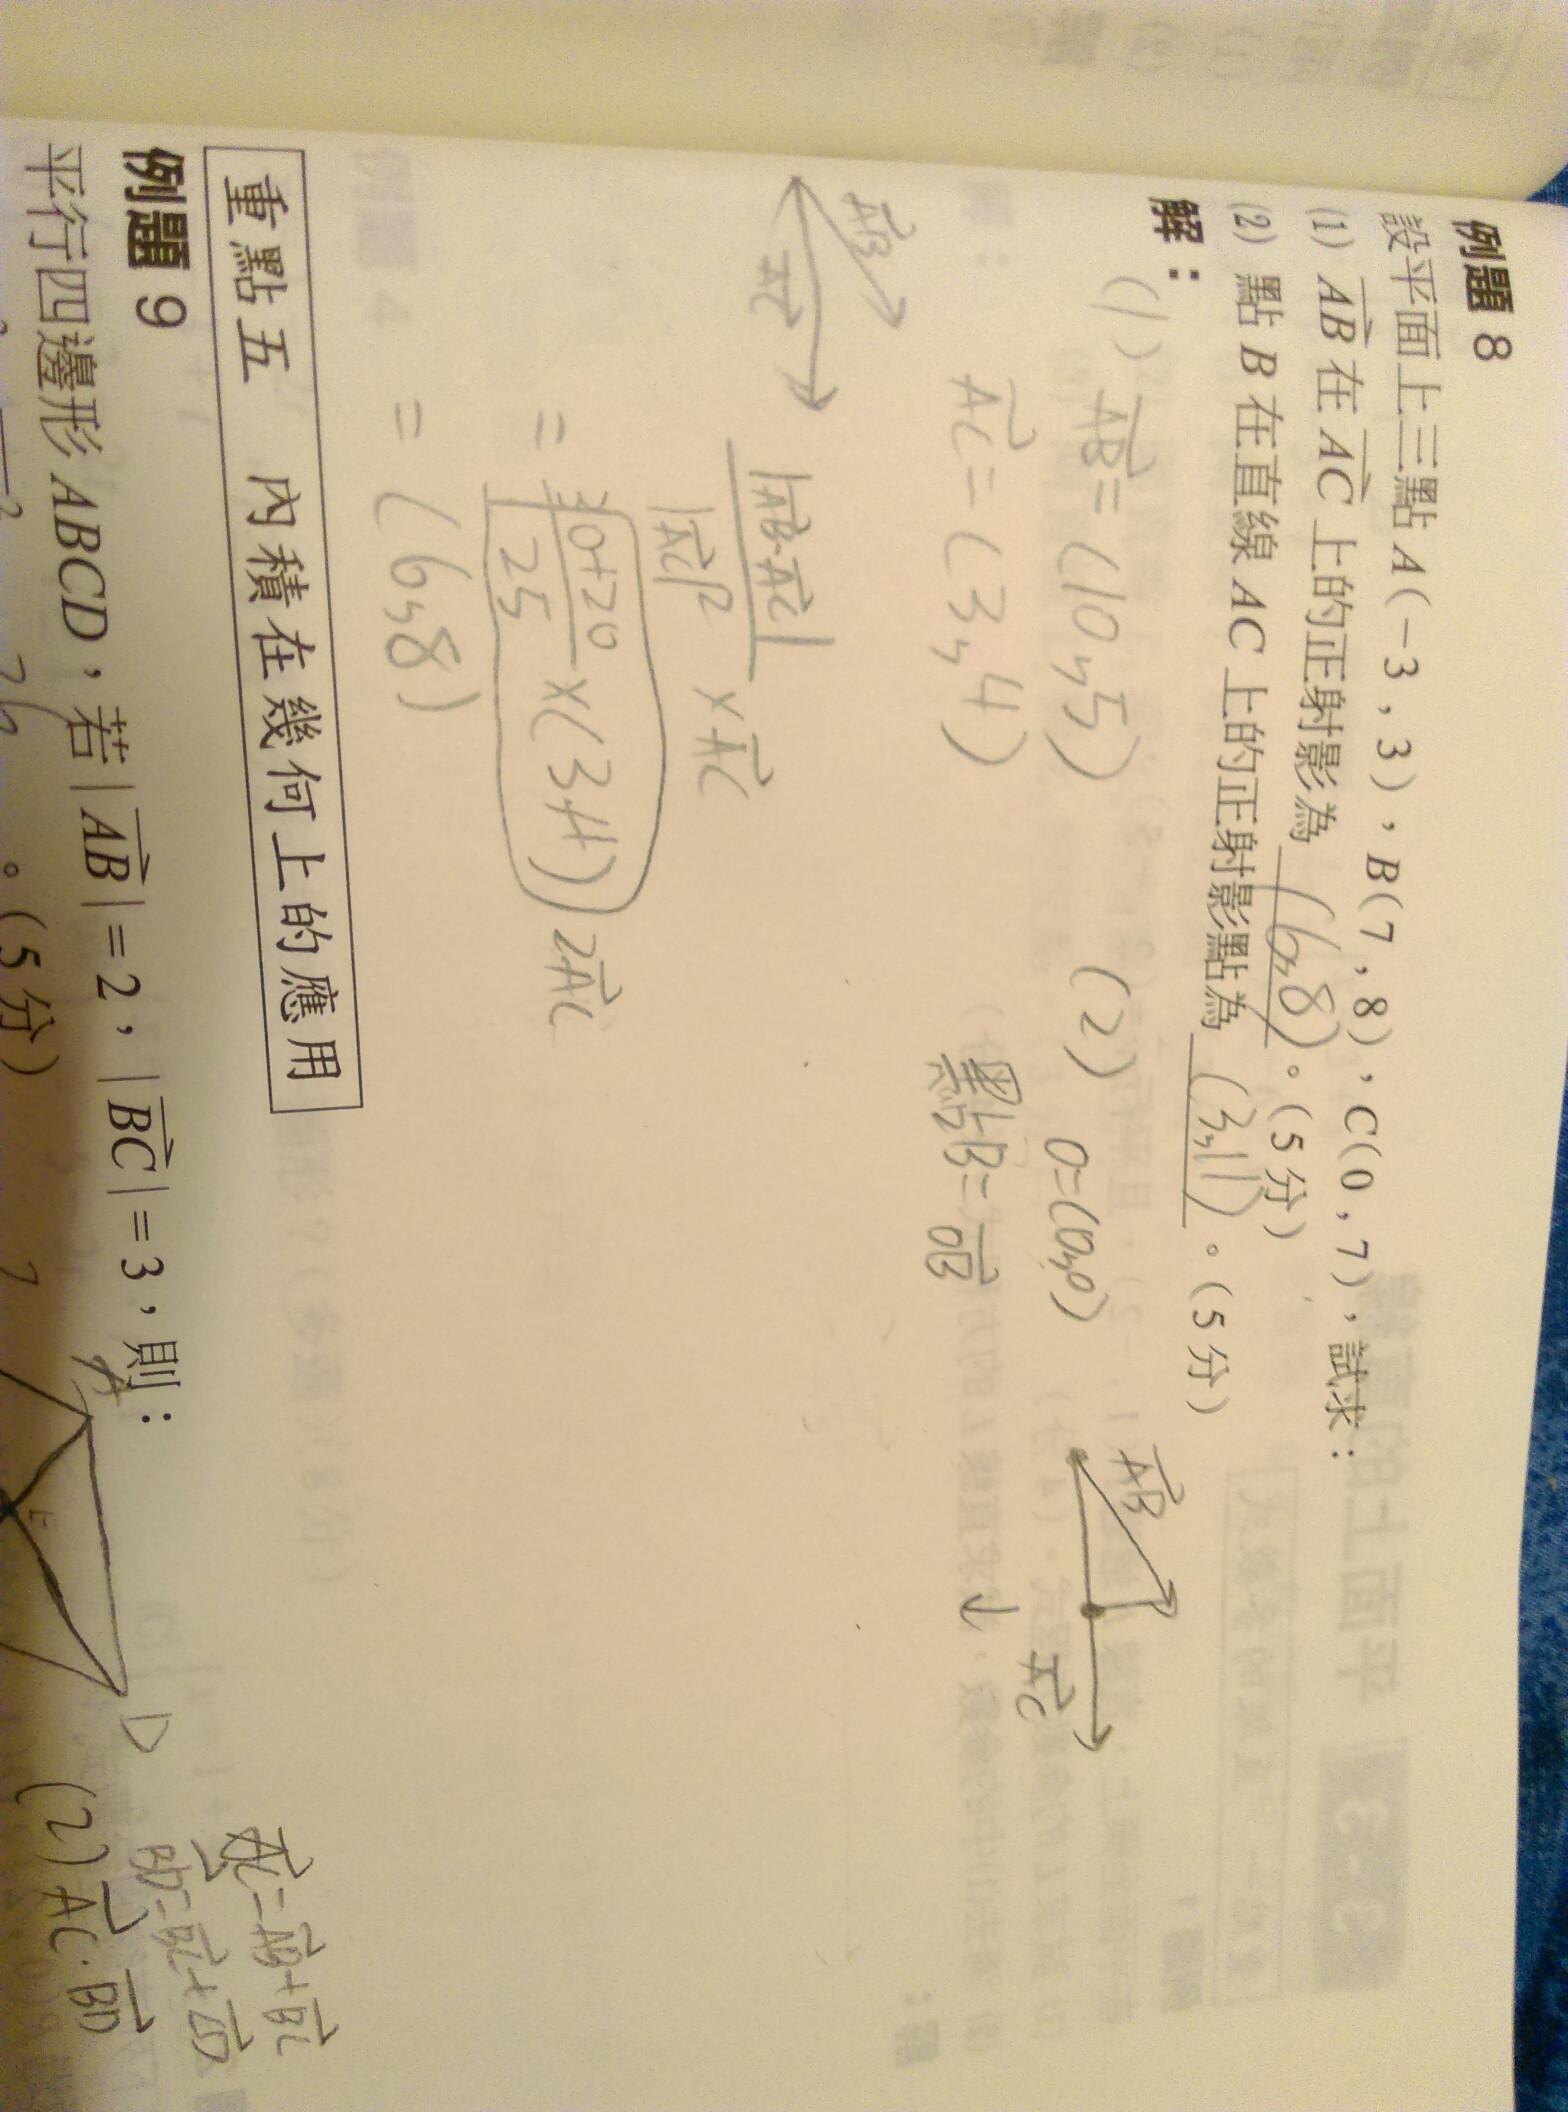 例題 8
設平面上三點 A(−3 , 3)，B(7 , 8)，C(0 , 7)，試求：
(1) AB 在 AC 上的正射影為 (6,8)。(5 分)
(2) 點 B 在直線 AC 上的正射影點為 (3,11)。(5 分)
解：
(1) AB = (10,5)
AC = (3,4)
AB
AC
|AB·AC|
|AC|² × AC
= 30+20
25 × (3,4) 2AC
= (6,8)
(2) O=(0,0)
點B = OB
AB
AC
重點五 內積在幾何上的應用
例題 9
平行四邊形 ABCD，若|AB|=2，|BC|=3，則：
。(5 分)
A
D
E
AC=AB+BC
BD=BC+CD
(2) AC·BD